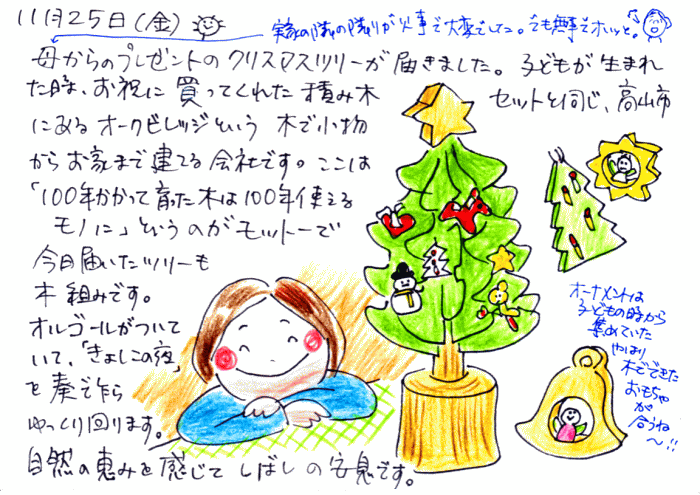 11月25日(金)
実家の隣の隣りが火事で大変でした。でも無事でホッと。
母からのプレゼントのクリスマスツリーが届きました。子どもが生まれ
た時、お祝に買ってくれた積み木セットと同じ、高山市
にあるオークビレッジという木で小物
からお家まで建てる会社です。ここは
「100年かかって育った木は100年使える
モノに」というのがモットーで
今日届いたツリーも
木組みです。
オルゴールがついて
いて、「きよしこの夜」
を奏で乍ら
ゆっくり回ります。
自然の恵みを感じてしばしの安息です。
オーナメントは
子どもの時から
集めていた
やはり
木でできた
おもちゃ
が
合うね
〜!!